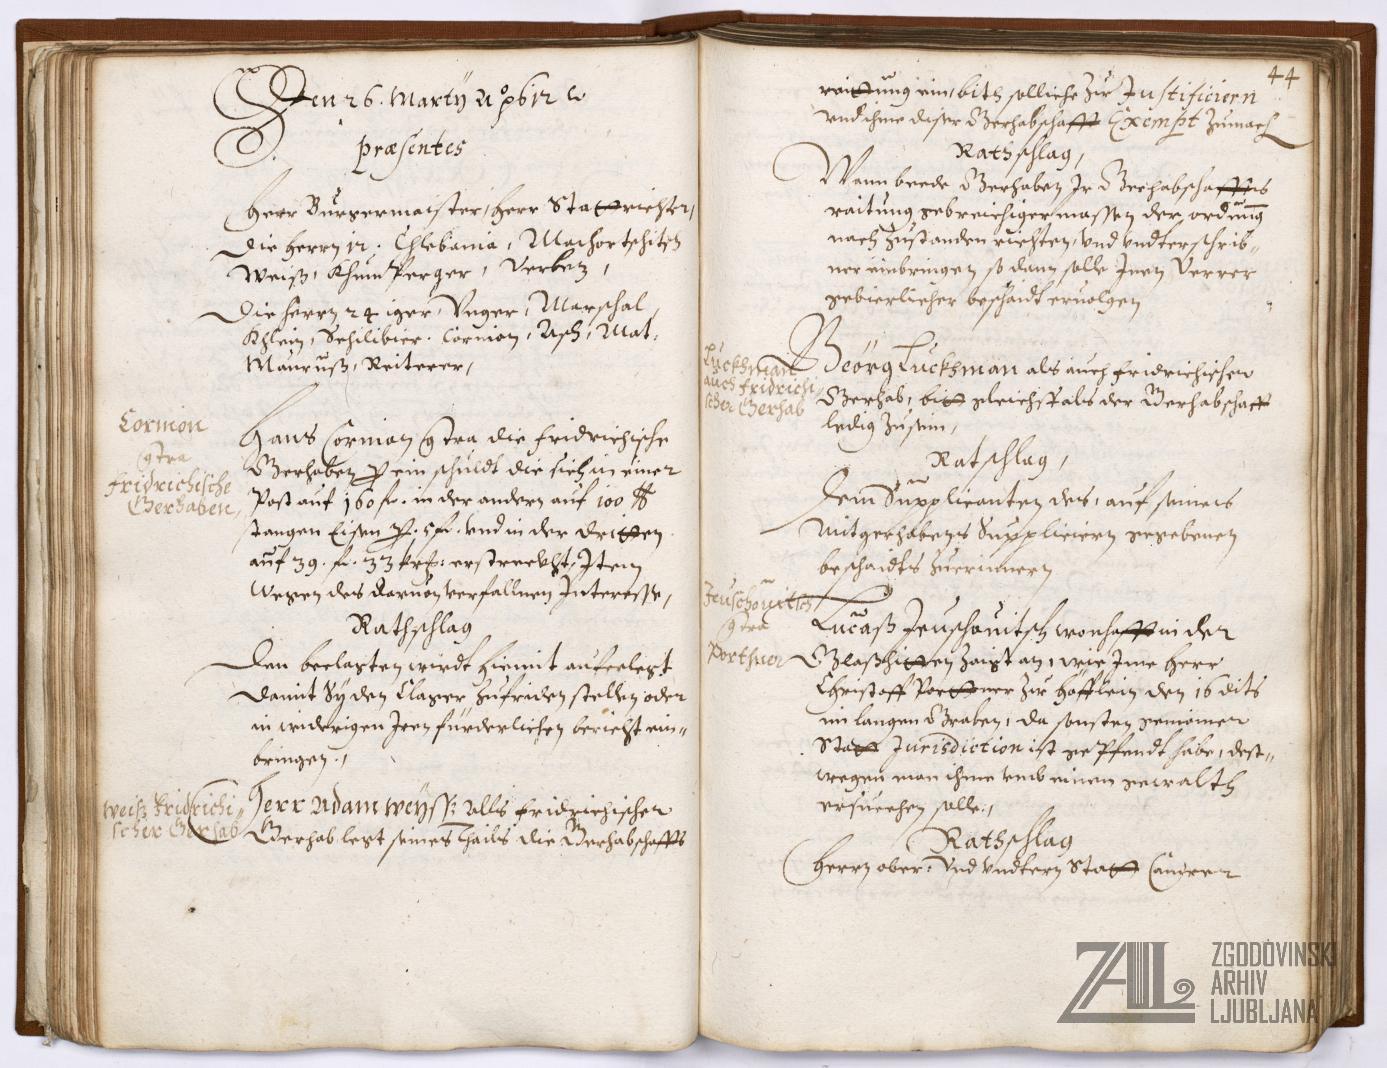 Den 26. Martÿ A͠o 1612
præsentes
Herr Burgermaister, Herr Stattrichter,
Die Herrn 12. Chlebania, Machortschitsch
Weiß, Khumperger, Verbetz,
Die Herrn 24 iger, Unger, Marschal,
Khlein, Schiliber. Cormion, Asch, Mat:
Mauruß, Reiterer,
Cormion
9tra
fridrichische
Gerhaben,
Hans Cormion 9tra die fridrichische
Gerhaben p ein schuldt die sich in einer
Post auf 160 fr. in der andern auf 100 ℔
stangen Eisen p. 5 fr. vnd in der dritten
auf 39. fr. 33 krf: erstreckht, Item
wegen des daruon verfallnen Interesse,
Rathschlag
Den beclagten wirdt hiemit auferlegt
damit Sÿ den Clager zufriden stellen oder
in widrigen Iren fürderlichen bericht ein-
bringen.,
Weiß fridrichi-
scher Gerhab
Herr Adam Weÿss: alls fridrichischer
Gerhab legt seines thails die Gerhabschaffts
44
raittung ein, bith solliche zu Justificiern
vnd ihme diser Gerhabschafft Exempt zumach
Rathschlag,
Wann beede Gerhaben Ir Gerhabschaffts
raitung gebreichigermassen der ordnung
nach zustanden richten, vnd vndterschrib-
ner einbringen so dann solle Inen verrer
gebierlicher beschaidt eruolgen
Luckhman
auch fridrichi-
scher Gerhab
Geörg Luckhman als auch fridrichischer
Gerhab, bitt gleichsfals der Gerhabschafft
ledig zusein,
Ratschlag,
Dem Supplicanten des, auf seines
mitgerhabens Suppliciern gegebenen
beschaidts zuerinnern
Jeuschouitsch
9tra
Portner
Lucaß Jeuschouitsch wonhafft in der
Glaßhitten zaigt an, wie Ime Herr
Christoff Portner zu Höfflein den 16 dits
im langen Graben, da sonsten gemainer
Statt Jurisdiction ist gepfendt habe, dest-
wegen man ihme vmb einem gewalth
ersuechen solle.,
Rathschlag
Herrn ober: vnd vndtern Statt Camrer
ZAL
ZGODOVINSKI
ARHIV
LJUBLJANA